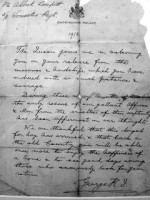 Pte Albert
Worcester Regt
BUCKINGHAM PALACE
1918.
The Queen joins me in welcoming
you on your release from the
miseries & hardships, which you have
endured with so much patience &
courage.
During these many months of trial,
the early rescue of our gallant Officers
& Men from the cruelties of their captivity
has been uppermost in our thoughts.
We are thankful that this longed
for day has arrived, & that back in
the old Country you will be able
once more to enjoy the happiness of
a home & to see good days among
those who anxiously look for your
return.
George R.I.